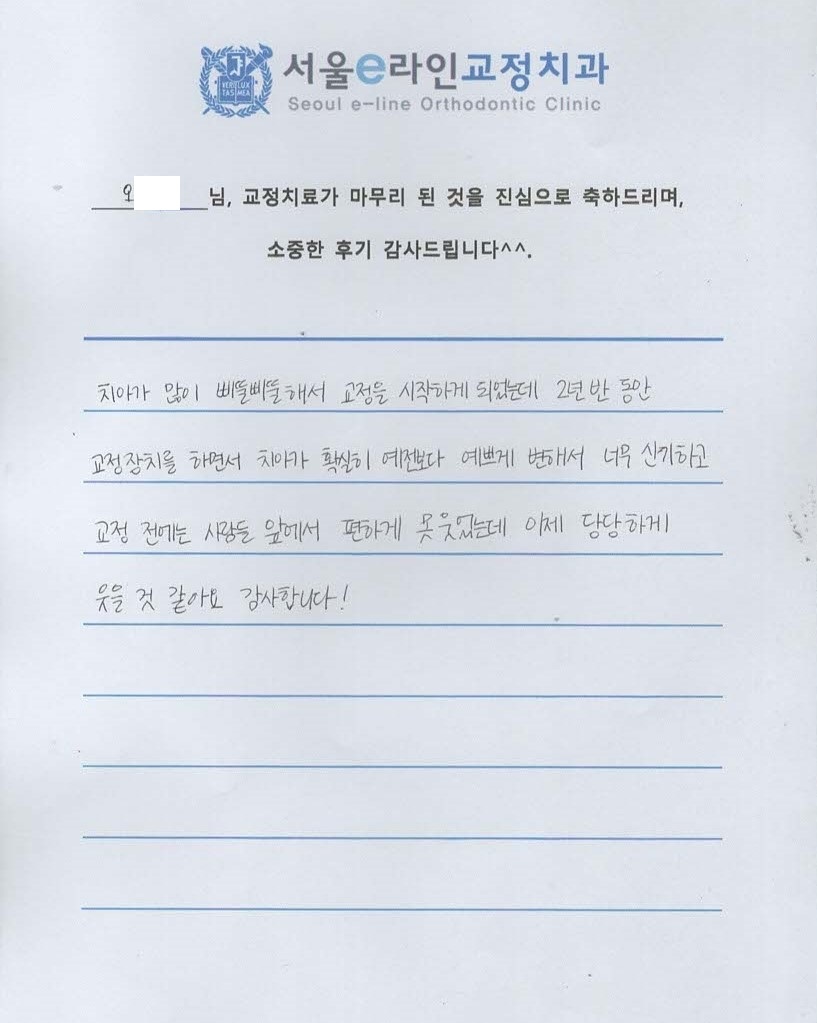 서울e라인교정치과
Seoul e-line Orthodontic Clinic
VERI LUX
TAS MEA
오 님, 교정치료가 마무리 된 것을 진심으로 축하드리며,
소중한 후기 감사드립니다^^.
치아가 많이 삐뚤삐뚤해서 교정을 시작하게 되었는데 2년 반 동안
교정장치를 하면서 치아가 확실히 예전보다 예쁘게 변해서 너무 신기하고
교정 전에는 사람들 앞에서 편하게 못 웃었는데 이제 당당하게
웃을 것 같아요 감사합니다!